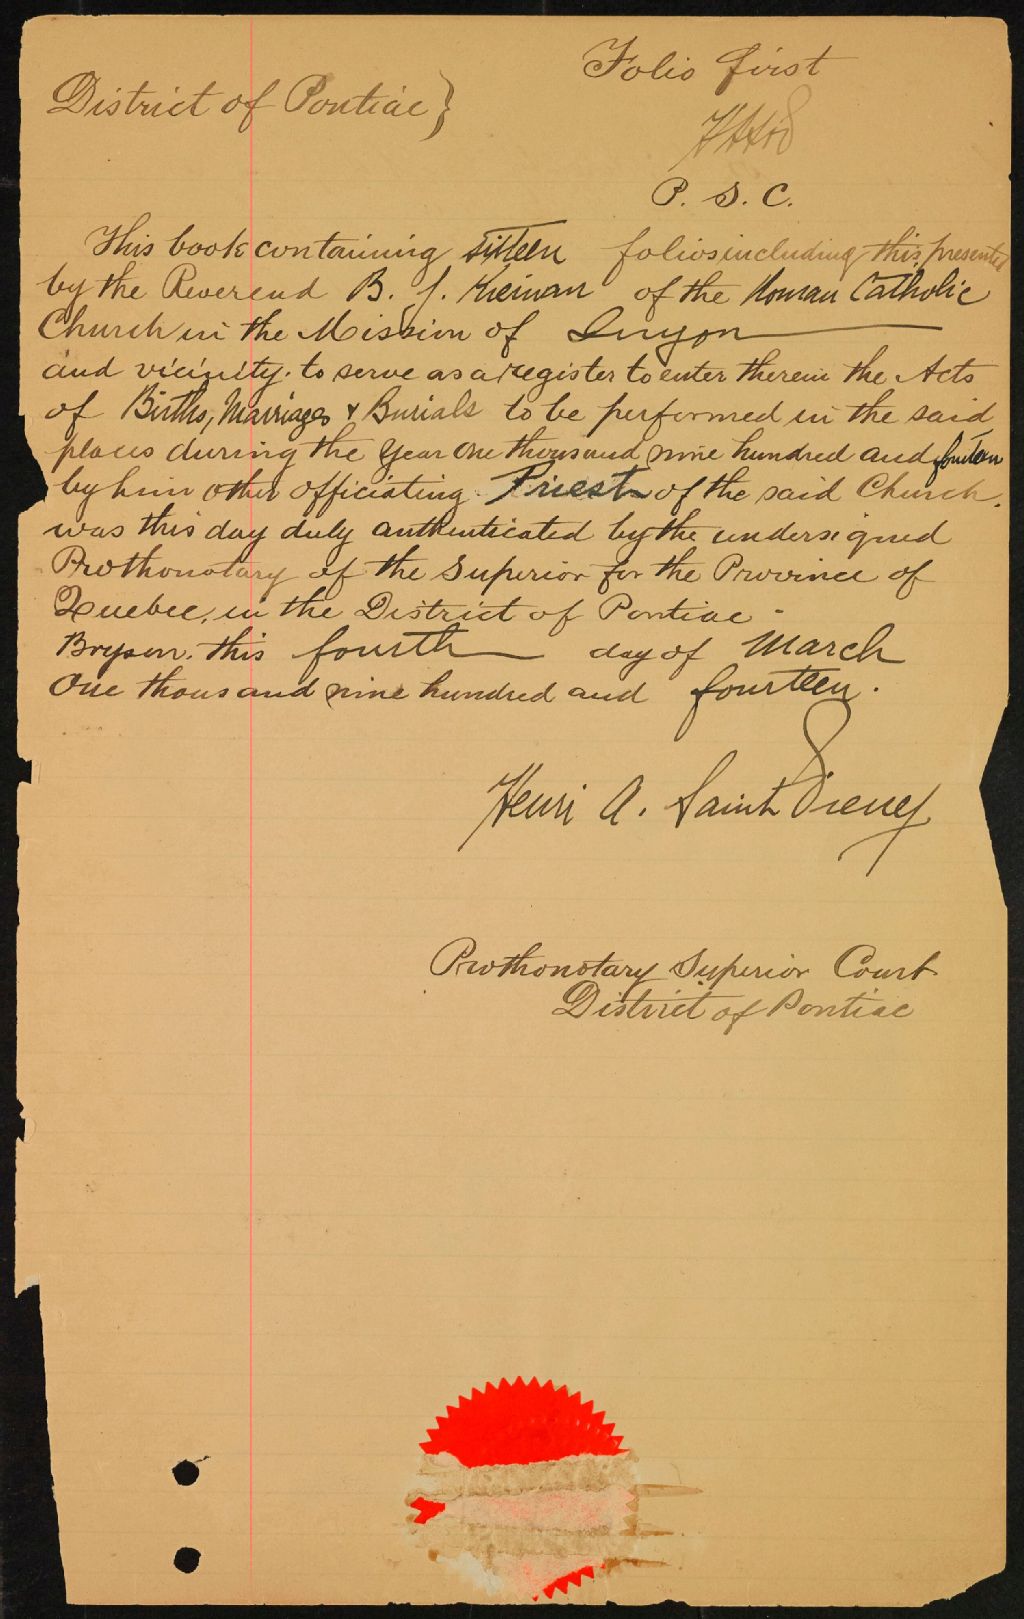 Folio first
District of Pontiac}
P. S. C.
This book containing sixteen folios including this, presented
by the Reverend B. J. Kiernan of the Roman Catholic
Church in the Mission of Quyon
and vicinity. to serve as a register to enter therein the Acts
of Births, Marriages & Burials to be performed in the said
places during the Year One thousand nine hundred and fourteen
by him other officiating Priest of the said Church.
was this day duly authenticated by the undersigned
Prothonotary of the Superior for the Province of
Quebec, in the District of Pontiac -
Bryson. this fourth day of March
One thousand nine hundred and fourteen.
Henri A. Saint Pierre
Prothonotary Superior Court
District of Pontiac